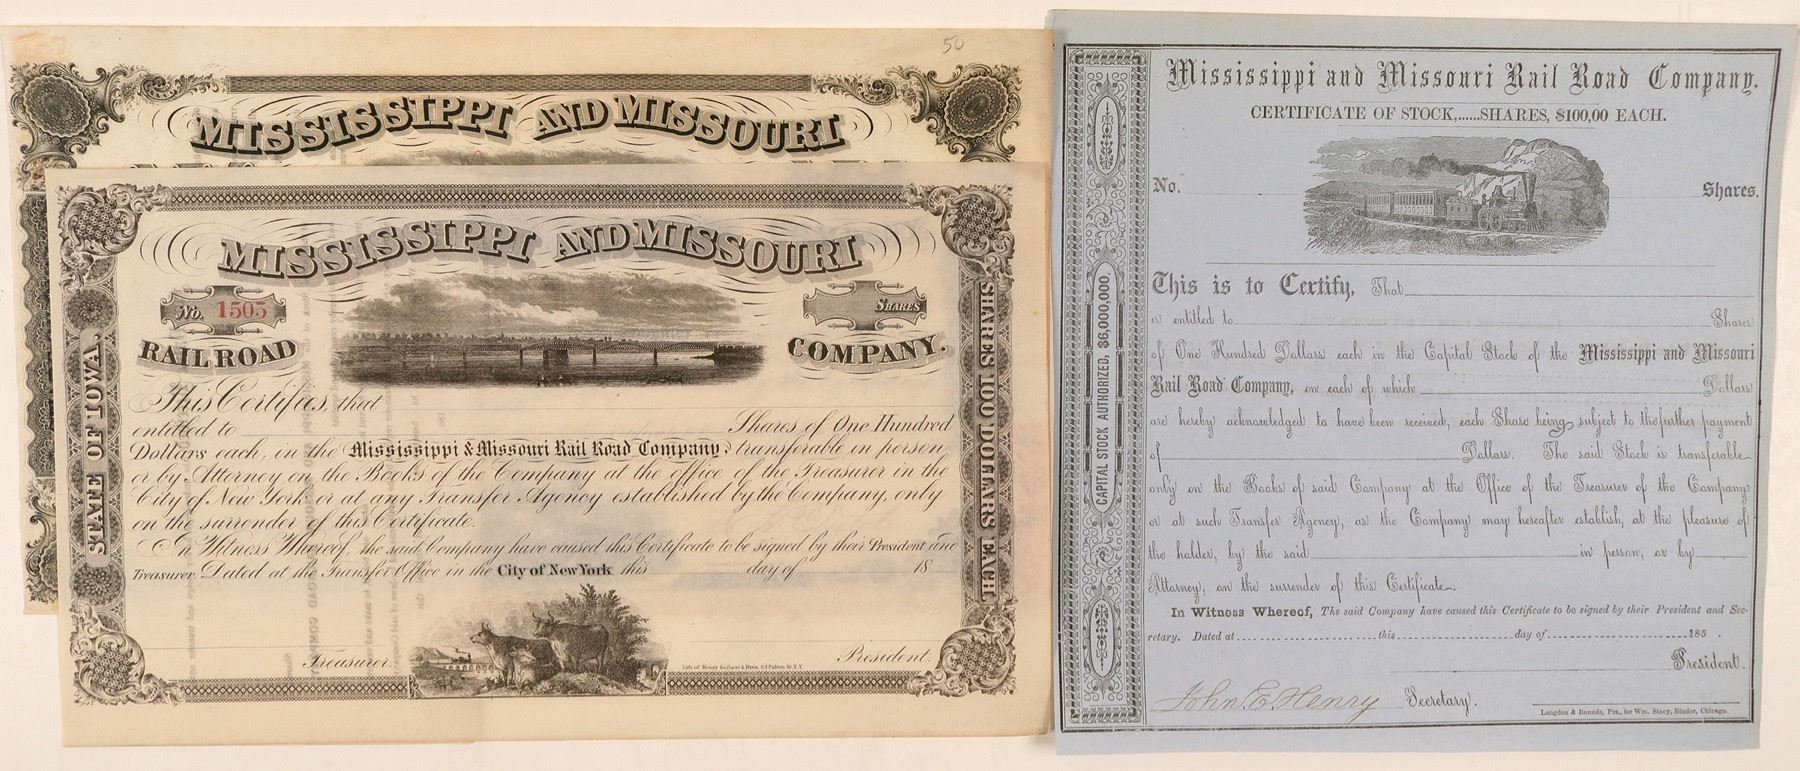 50
MISSISSIPPI AND MISSOURI
MISSISSIPPI AND MISSOURI
No. 1505
SHARES
RAIL ROAD
COMPANY.
STATE OF IOWA.
SHARES 100 DOLLARS EACH.
This Certifies, that
entitled to Shares of One Hundred
Dollars each, in the Mississippi & Missouri Rail Road Company, transferable in person
or by Attorney on the Books of the Company at the office of the Treasurer in the
City of New York or at any Transfer Agency established by the Company, only
on the surrender of this Certificate.
In Witness Whereof, the said Company have caused this Certificate to be signed by their President and
Treasurer. Dated at the Transfer Office in the City of New York this day of 18
Treasurer.
President.
Mississippi and Missouri Rail Road Company.
CERTIFICATE OF STOCK,......SHARES, $100,00 EACH.
No. Shares.
CAPITAL STOCK AUTHORIZED, $6,000,000,
This is to Certify, That
is entitled to Shares
of One Hundred Dollars each in the Capital Stock of the Mississippi and Missouri
Rail Road Company, on each of which Dollars
are hereby acknowledged to have been received, each Share being subject to the further payment
of Dollars. The said Stock is transferable
only on the Books of said Company at the Office of the Treasurer of the Company
or at such Transfer Agency, as the Company may hereafter establish, at the pleasure of
the holder, by the said in person, or by
Attorney, on the surrender of this Certificate.
In Witness Whereof, The said Company have caused this Certificate to be signed by their President and Sec-
retary. Dated at this day of 185 .
President.
John E. Henry Secretary.
Langdon & Rounds, Prs., for Wm. Stacy, Binder, Chicago.